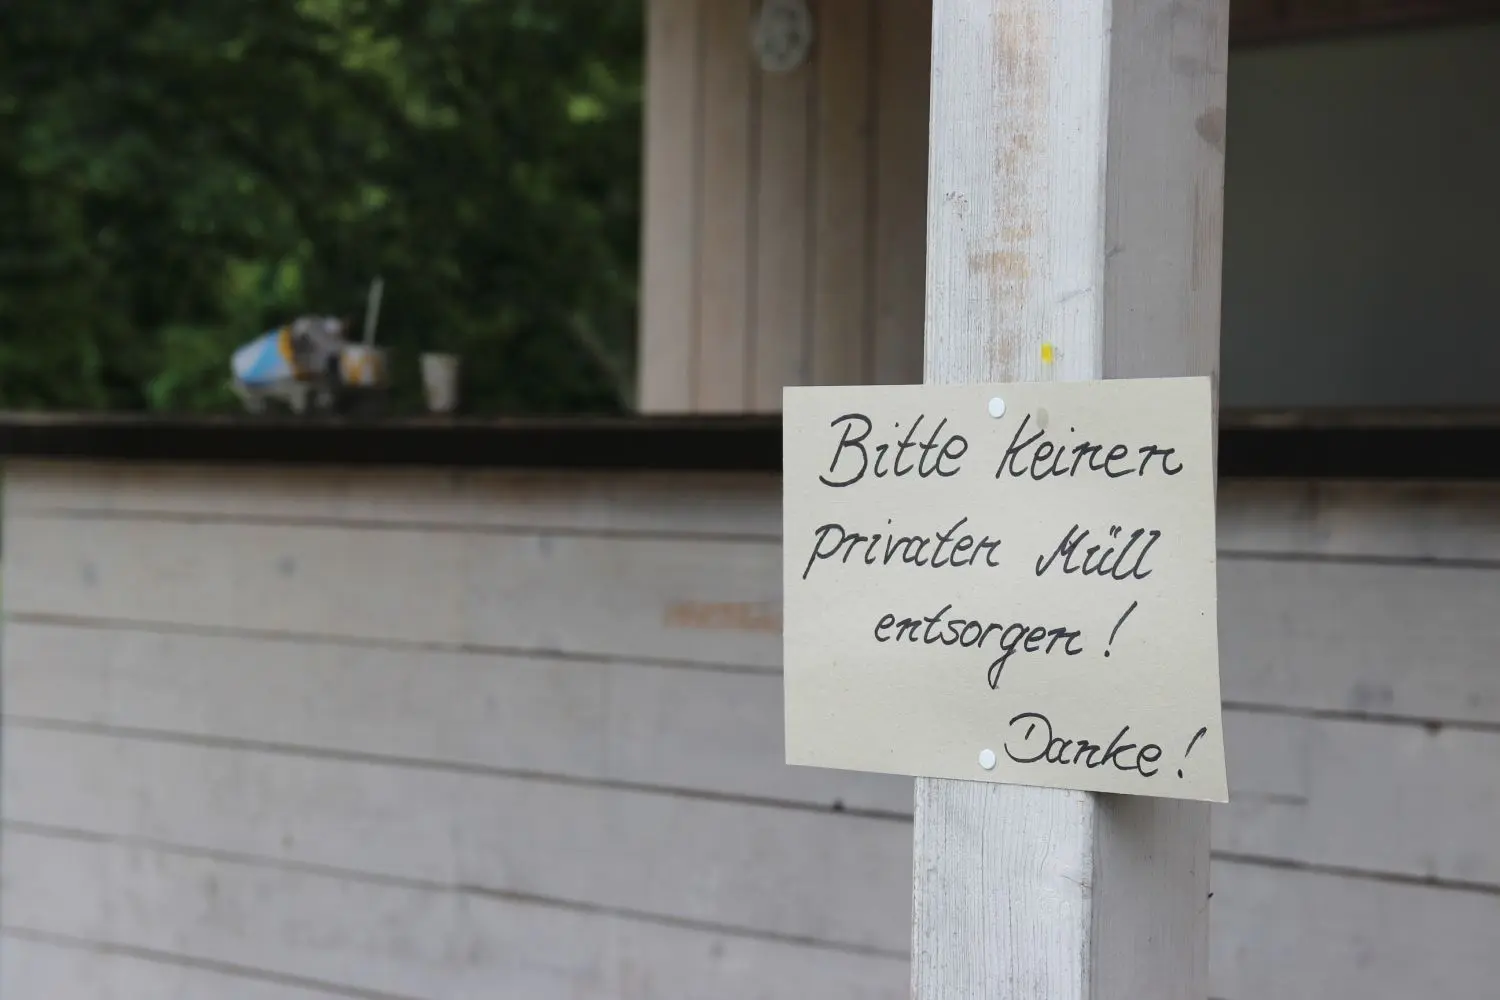 Bitte keinen
privaten Müll
entsorgen!
Danke!